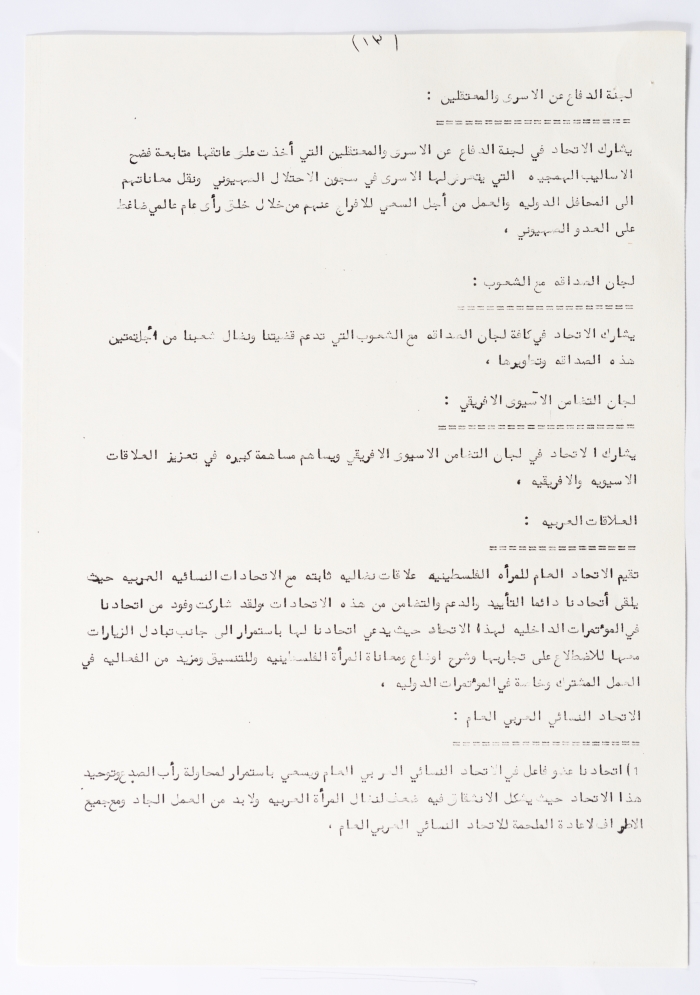 (١٣)
لجنة الدفاع عن الاسرى والمعتقلين :
====================
يشارك الاتحاد في لجنة الدفاع عن الاسرى والمعتقلين التي أخذت على عاتقها متابعة فضح
الاساليب الهمجيه التي يتعرض لها الاسرى في سجون الاحتلال الصهيوني ونقل معاناتهم
الى المحافل الدوليه والعمل من أجل السعي للافراج عنهم من خلال خلق رأى عام عالمي ضاغط
على العدو الصهيوني ،
لجان الصداقه مع الشعوب :
==================
يشارك الاتحاد في كافة لجان الصداقه مع الشعوب التي تدعم قضيتنا ونضال شعبنا من أجل تمتين
هذه الصداقه وتطويرها ،
لجان التضامن الآسيوى الافريقي :
====================
يشارك الاتحاد في لجان التضامن الاسيوى الافريقي ويساهم مساهمة كبيره في تعزيز العلاقات
الاسيويه والافريقيه ،
العلاقات العربيه :
===============
تقيم الاتحاد العام للمرأه الفلسطينيه علاقات نضاليه ثابته مع الاتحادات النسائيه العربيه حيث
يلقى أتحادنا دائما التأييد والدعم والتضامن من هذه الاتحادات ولقد شاركت وفود من اتحادنا
في المؤتمرات الداخليه لهذا الاتحاد حيث يدعي اتحادنا لها باستمرار الى جانب تبادل الزيارات
معها للاضطلاع على تجاربها وشرح اوضاع ومعاناة المرأة الفلسطينيه وللتنسيق ومزيد من الفعاليه في
العمل المشترك وخاصة في المؤتمرات الدوليه ،
الاتحاد النسائي العربي العام :
===================
1) اتحادنا عضو فاعل في الاتحاد النسائي العربي العام ويسعي باستمرار لمحاولة رأب الصدع وتوحيد
هذا الاتحاد حيث يشكل الانشقاق فيه ضعف لنضال المرأة العربيه ولابد من العمل الجاد ومع جميع
الاطراف لاعادة الملحمة للاتحاد النسائي العربي العام ،